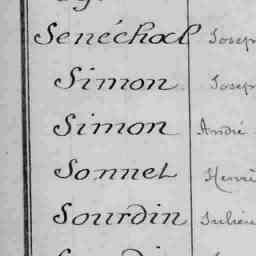 Senéchal Josep
Simon Josep
Simon André
Sonnet Henri
Sourdin Julien